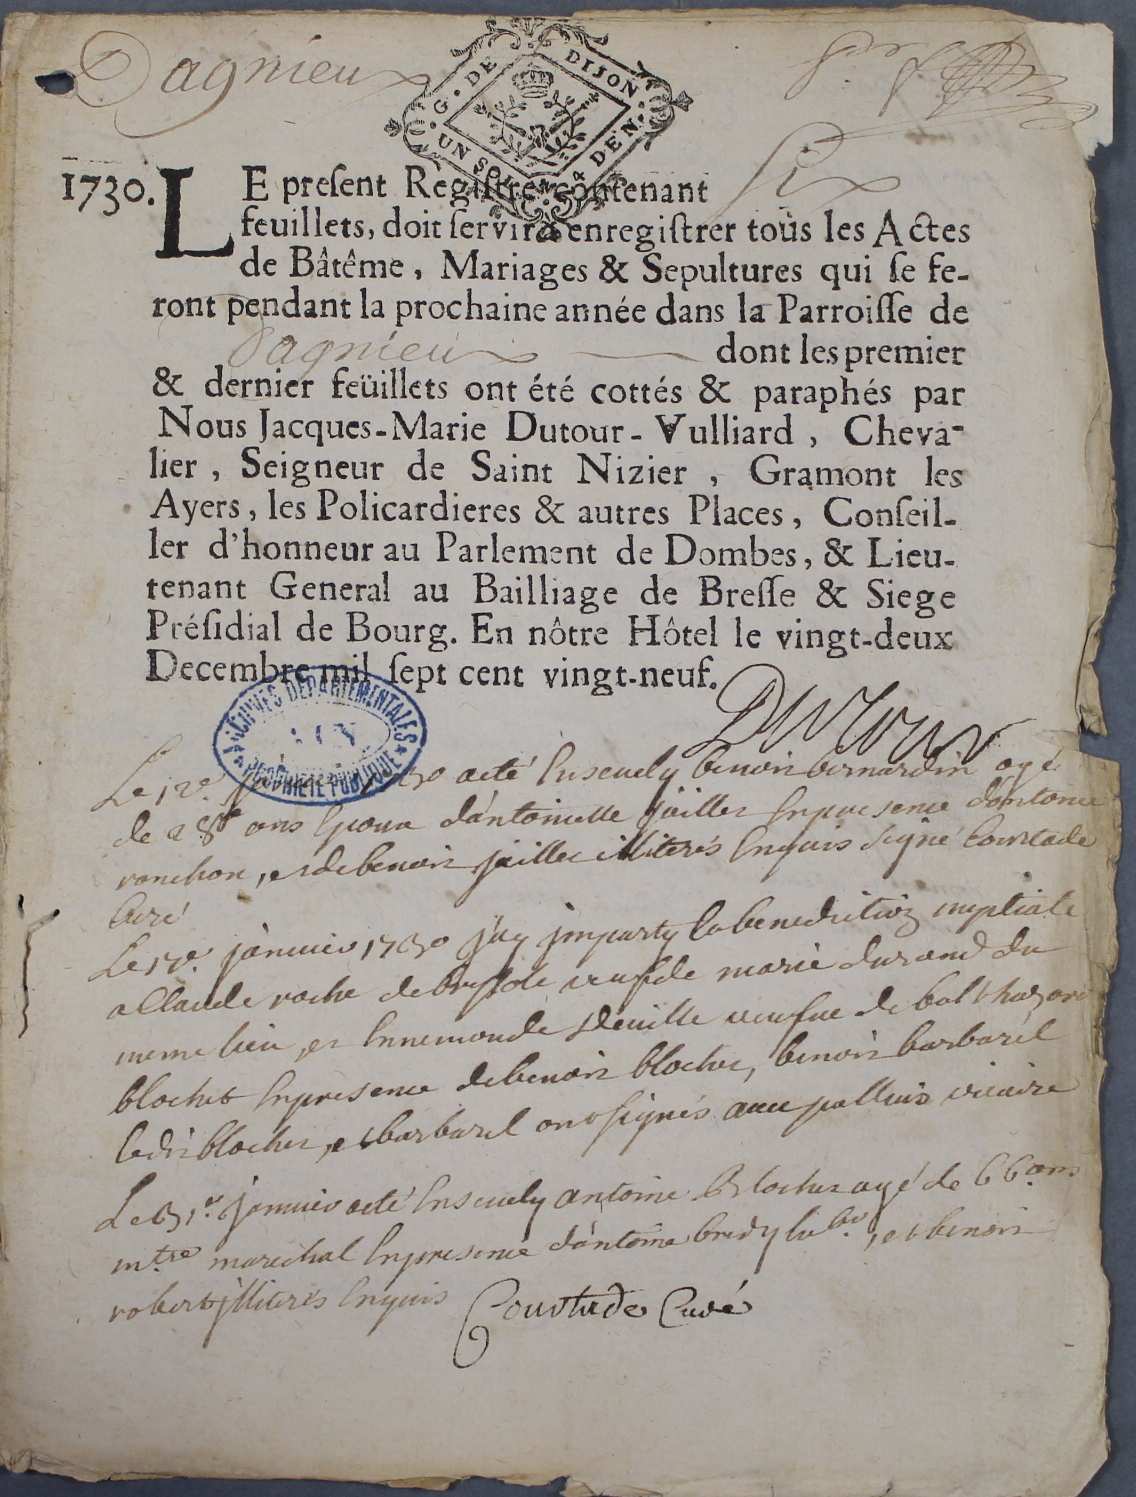 Dagnieu
G. DE DIJON
UN SOL 4 DEN.
1730. LE preſent Regiſtre contenant Six
feuillets, doit ſervir à enregiſtrer tous les Actes
de Bâtême, Mariages & Sepultures qui ſe fe-
ront pendant la prochaine année dans la Parroiſſe de
Dagnieu dont les premier
& dernier feüillets ont été cottés & paraphés par
Nous Jacques-Marie Dutour-Vulliard, Cheva-
lier, Seigneur de Saint Nizier, Gramont les
Ayers, les Policardieres & autres Places, Conſeil-
ler d'honneur au Parlement de Dombes, & Lieu-
tenant General au Bailliage de Breſſe & Siege
Préſidial de Bourg. En nôtre Hôtel le vingt-deux
Decembre mil ſept cent vingt-neuf.
Dutour
ARCHIVES DEPARTEMENTALES
AIN
PROPRIÉTÉ PUBLIQUE
Le 12e. 1730 aeté Ensevely benoit bernardin agé
de 28 ans Epoux d'antoinette jaillet En presence d'antoine
ronchon, et de benoit jaillet illiterés Enquis Signé Courtade
Curé
Le 17e. janvier 1730 j'ay imparty la benediction nuptiale
a Claude roche de bressole veuf de marie durand du
meme lieu, et Ennemonde veufue de balthazard
blochet En presence de benoit blochet, benoit barbarel
ledit blochet, et barbarel ont signés avec vicaire
Le 31e. janvier aeté Ensevely antoine Blochet agé de 66 ans
mtre marechal En presence d'antoine et benoit
robert illiterés Enquis Courtade Curé